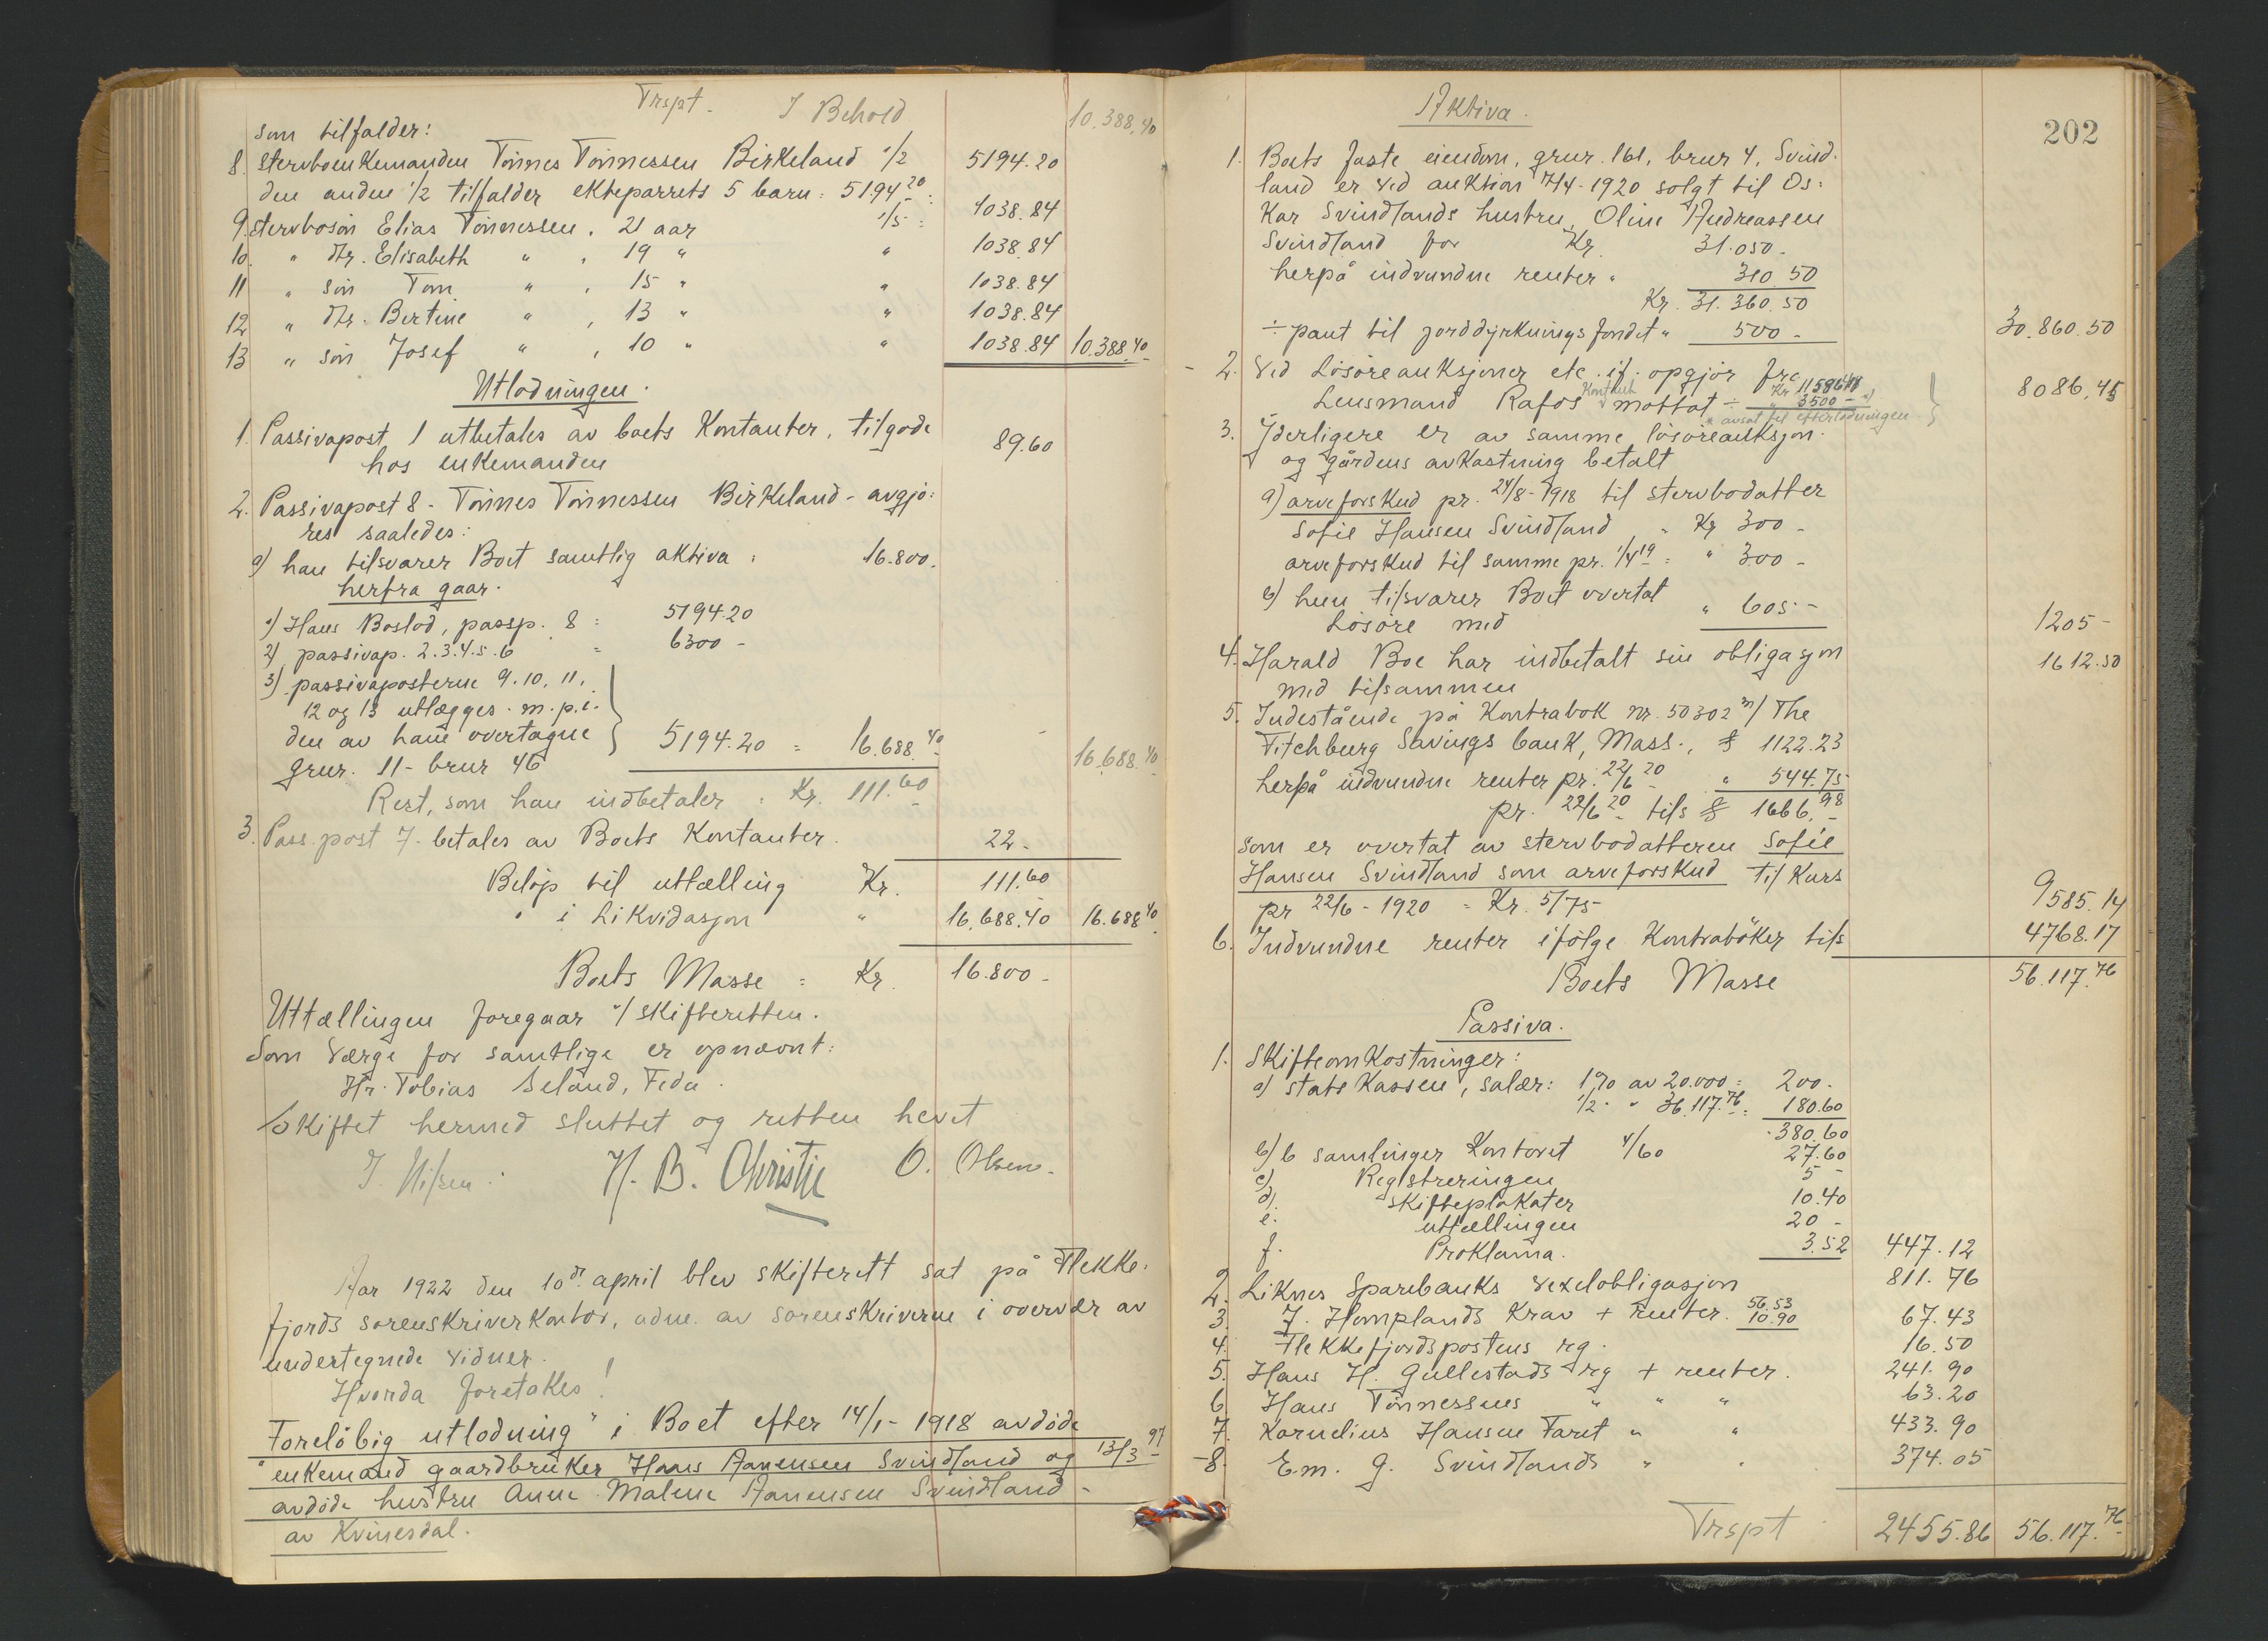 Trspt. I Behold 10.388,40
som tilfalder:
8. stervboenkemanden Tönnes Tönnessen Birkeland 1/2 5194.20
den anden 1/2 tilfalder ekteparrets 5 barn: 5194 20
9. stervbosön Elias Tönnessen, 21 aar 1/5 = 1038.84
10. " dtr. Elisabeth " , 19 " " 1038.84
11 " sön Tom " , 15 " " 1038.84
12 " dtr. Bertine " , 13 " " 1038.84
13 " sön Josef " , 10 " " 1038.84 10.388,40
Utlodningen.
1. Passivapost 1 utbetales av boets Kontanter, tilgode
hos enkemanden 89.60
2. Passivapost 8 - Tönnes Tönnessen Birkeland - avgjö:
res saaledes:
a) han tilsvarer Boet samtlig aktiva : 16.800.
herfra gaar.
1) Hans Boslod, passp. 8 = 5194.20
2) passivap. 2.3.4.5.6 = 6300 -
3) passivaposterne 9. 10. 11.
12 og 13 utlægges m.p.i.
den av ham overtagne 5194.20 = 16.688.40
grnr. 11 - brnr 46 16.688.40
Rest, som han indbetaler : Kr. 111.60
3. Pass.post 7 - betales av Boets Kontanter. 22 -
Belöp til uttælling Kr. 111.60
" i Likvidasjon " 16.688.40 16.688 40
Boets Masse = Kr. 16.800 -
Uttællingen foregaar v/ skifteretten.
Som Værge for samtlige er opnævnt:
Hr. Tobias Seland, Feda.
Skiftet hermed sluttet og retten hevet
J. Nilsen. H. B. Christie O. Olsen.
Aar 1922 den 10de april blev skifterett sat på Flekke:
fjords sorenskriverkontor, adm. av sorenskriveren i overvær av
undertegnede vidner.
Hvorda foretakes!
Foreløbig utlodning " i Boet efter 14/1 - 1918 avdöde
" enkemand gaardbruker Hans Aanensen Svindland og 13/3 97
avdöde hustru Anne Malene Aanensen Svindland -
av Kvinesdal.
202
Aktiva.
1. Boets faste eiendom, grnr. 161, brnr 4, Svind:
land er ved auktion 7/4 - 1920 solgt til Os:
kar Svindlands hustru, Oline Andreassen
Svindland for Kr. 31.050 -
herpå indvundne renter " 310.50
Kr. 31.360.50
÷ pant til jorddyrkningsfondet " 500 - 30.860.50
2. Ved Lösöreauksjoner etc. if. opgjör fra Kr 11586.48
Lensmand Rafos Kontant mottat ÷ " 3500 - x) 8086,45
x avsat til efterlodningen
3. Yderligere er av samme lösöreauksjon
og gårdens avkastning betalt
a) arveforskud pr. 24/8 - 1918 til stervbodatter
Sofie Hansen Svindland " Kr 300 -
arveforskud til samme pr. 1/4 19 = " 300 -
b) hun tilsvarer Boet overtat
Lösöre med " 605 - 1205 -
4. Harald Boe har indbetalt sin obligasjon
med tilsammen 1612.50
5. Indestående på Kontrabok nr. 50302 m/ The
Fitchburg Savings bank, Mass., $ 1122.23
herpå indvundne renter pr. 22/6 20 " 544.75
pr. 22/6 20 tils $ 1666.98
som er overtat av stervbodatteren Sofie
Hansen Svindland som arveforskud til Kurs
pr 22/6 - 1920 = Kr. 5/75 9585.14
6. Indvundne renter ifölge Kontraböker tils 4768.17
Boets Masse 56.117.76
Passiva.
1. Skifteomkostninger:
a) statskassen, salær: 1% av 20.000 = 200.
1/2 " " 36.117.76 = 180.60
380.60
b) 6 samlinger Kontoret 4/60 27.60
c) Registreringen 5 -
d). skifteplakater 10.40
e. uttællingen 20 -
f. Proklama. 3.52 447.12
2. Liknes Sparebanks vexelobligasjon 811.76
3. J. Homplands Krav + renter. 56.53 10.90 67.43
4. Flekkefjordspostens rg. 16.50
5. Hans H. Gullestads rg + renter. 241.90
6. Hans Tönnessens " " " 63.20
7. Kornelius Hansen Faret " " 433.90
8. Em. G. Svindlands " " 374.05
Trspt 2455.86 56.117.76